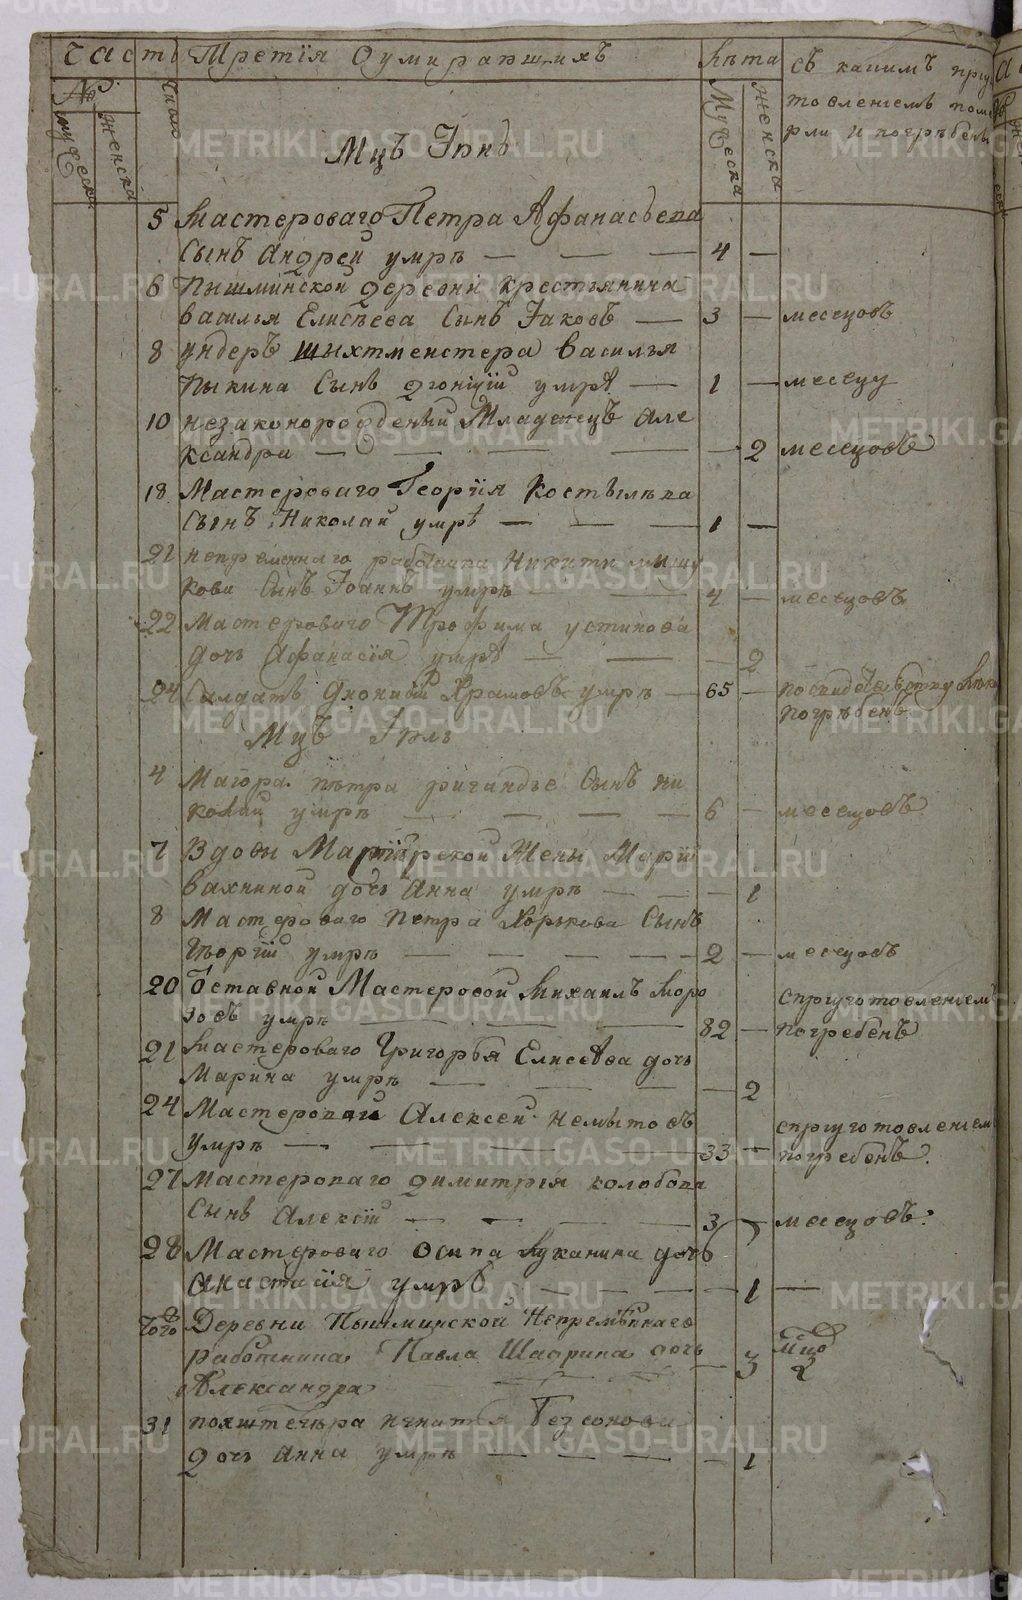 Часть Третїя Оумиравшихъ Лѣта Съ какимъ приу
№ Число товленіемъ поме
мужеска женска Мужеска женска рли и погрѣбены
Мцъ Іюнь
5 Мастероваго Петра Афанасьева
Сынъ Андрей умрѣ — — — 4 —
6 Пышминской деревни крестьянина
василья Елисѣева Сынъ Іаковъ — 3 — месецовъ
8 ундеръ шыхтмейстера василья
Пыкина Сынъ умрѣ — 1 — месецу
10 незаконорожденый Младенецъ Але
ксандра — — — — — 2 месецовъ
18 Мастероваго Георгія Костылева
Сынъ Николай умрѣ — — — 1 —
21 непременнаго работника Никиты
кова Сынъ Іоаннъ умрѣ — — 4 — месецовъ
22 Мастероваго Трофима устинова
дочь Афанасїя умрѣ — — — 2
24 Салдатъ Дионисїй Храмовъ умрѣ — 65 —
погрѣбенъ
Мцъ Іюль
4 Маіора петра Сынъ ни
колай умрѣ — — — — 6 — месецовъ
7 Вдовы Мастерской Жены Марїи
вахниной дочь Анна умрѣ — — — 1
8 Мастероваго Петра Хорькова Сынъ
Гьоргїй умрѣ — — — — 2 — месецовъ
20 Оставной Мастеровой Михаилъ Моро спригготовленіемъ
зовъ умрѣ — — — 82 — погребенъ
21 Мастероваго Григорья Елисеева дочь
Марина умрѣ — — — — 2
24 Мастеровай Алексей немытовъ спригготовленіемъ
умрѣ — — — — 33 — погребенъ.
27 Мастероваго димитрія колобова
Сынъ Алексїй — — — — 3 — месецовъ:
28 Мастероваго Осипа Луканина дочь
Анастасїя умрѣ — — — — 1 —
Того Деревни Пышминской Непремѣннаго
работника Павла Шаврина дочь — 3 мцо
Александра 2
31 игнатья Безсонова
дочь Анна умрѣ — — — — 1
METRIKI.GASO-URAL.RU